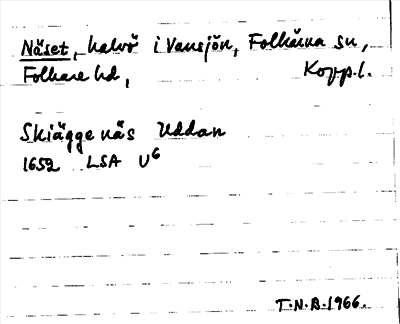 Näset, halvö i Vansjön, Folkärna sn,
Folkare hd, Kopp.l.
Skiägge näs Uddan
1652 LSA U6
T.N.B.1966.